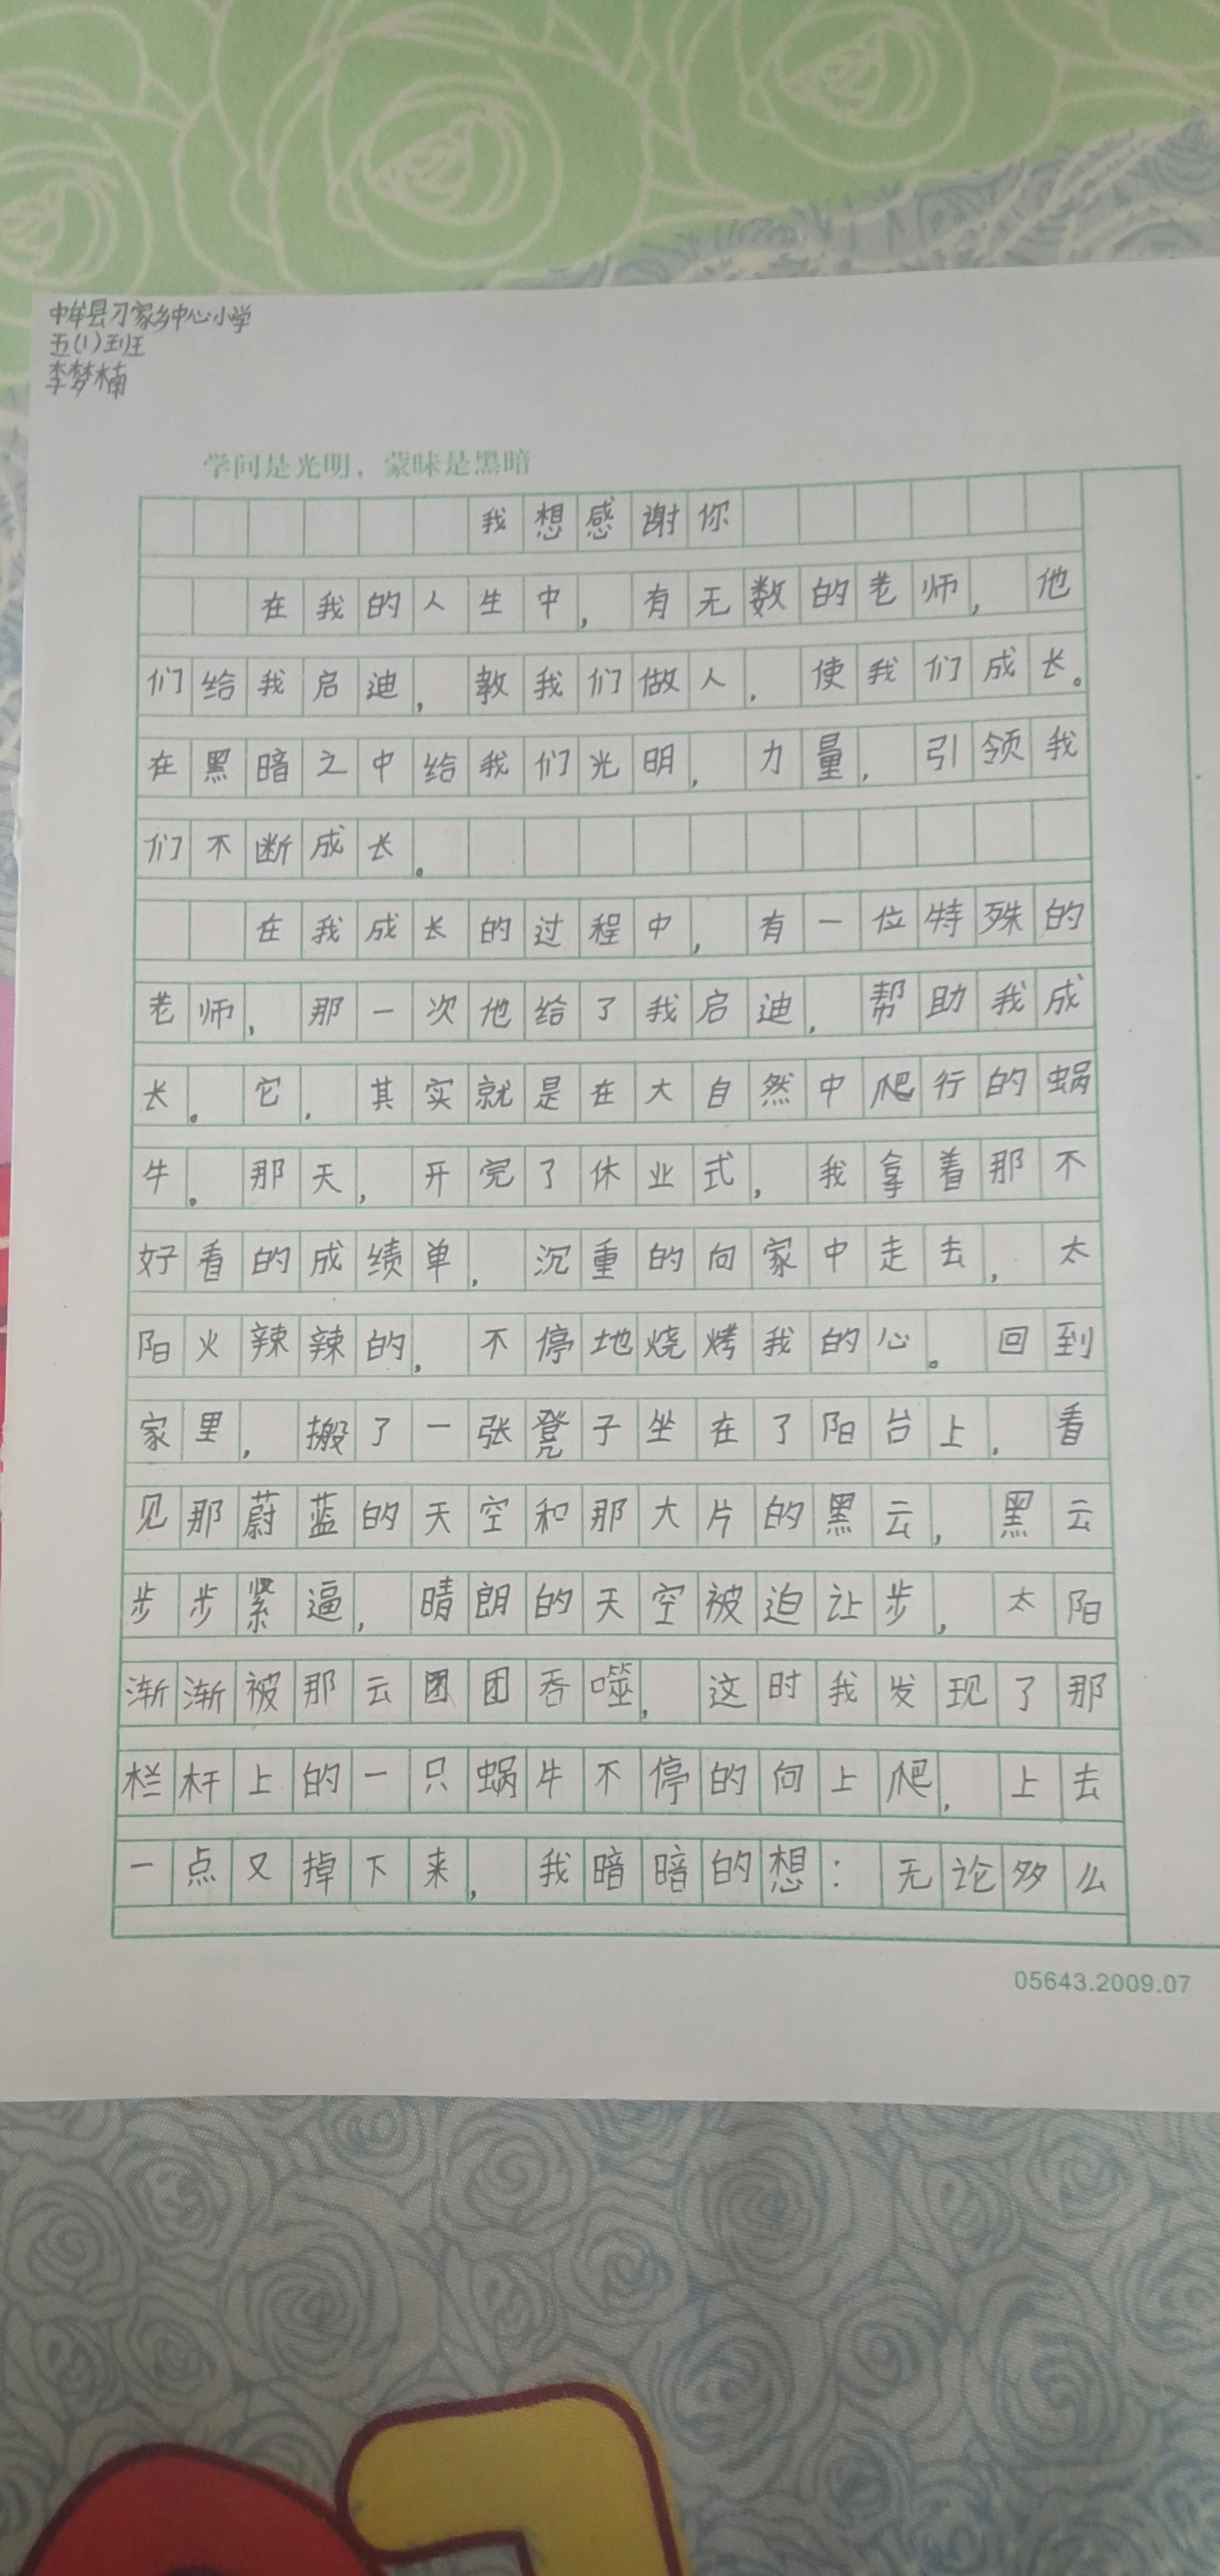 中牟县刁家乡中心小学
五(1)班
李梦楠
学问是光明，蒙昧是黑暗
我想感谢你
在我的人生中，有无数的老师，他
们给我启迪，教我们做人，使我们成长。
在黑暗之中给我们光明，力量，引领我
们不断成长。
在我成长的过程中，有一位特殊的
老师，那一次他给了我启迪，帮助我成
长。它，其实就是在大自然中爬行的蜗
牛。那天，开完了休业式，我拿着那不
好看的成绩单，沉重的向家中走去，太
阳火辣辣的，不停地烧烤我的心。回到
家里，搬了一张凳子坐在了阳台上，看
见那蔚蓝的天空和那大片的黑云，黑云
步步紧逼，晴朗的天空被迫让步，太阳
渐渐被那云团团吞噬，这时我发现了那
栏杆上的一只蜗牛不停的向上爬，上去
一点又掉下来，我暗暗的想：无论多么
05643.2009.07